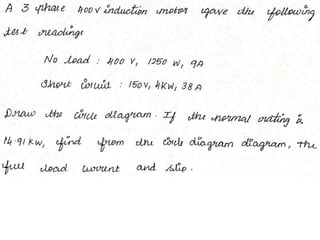 A 3 phase 400V induction motor gave the following
test readings
No load : 400 V, 1250 W, 9A
Short Circuit : 150V, 4KW, 38 A
Draw the circle diagram. If the normal rating is
14.91 KW, find from the circle diagram diagram, the
full load current and slip.